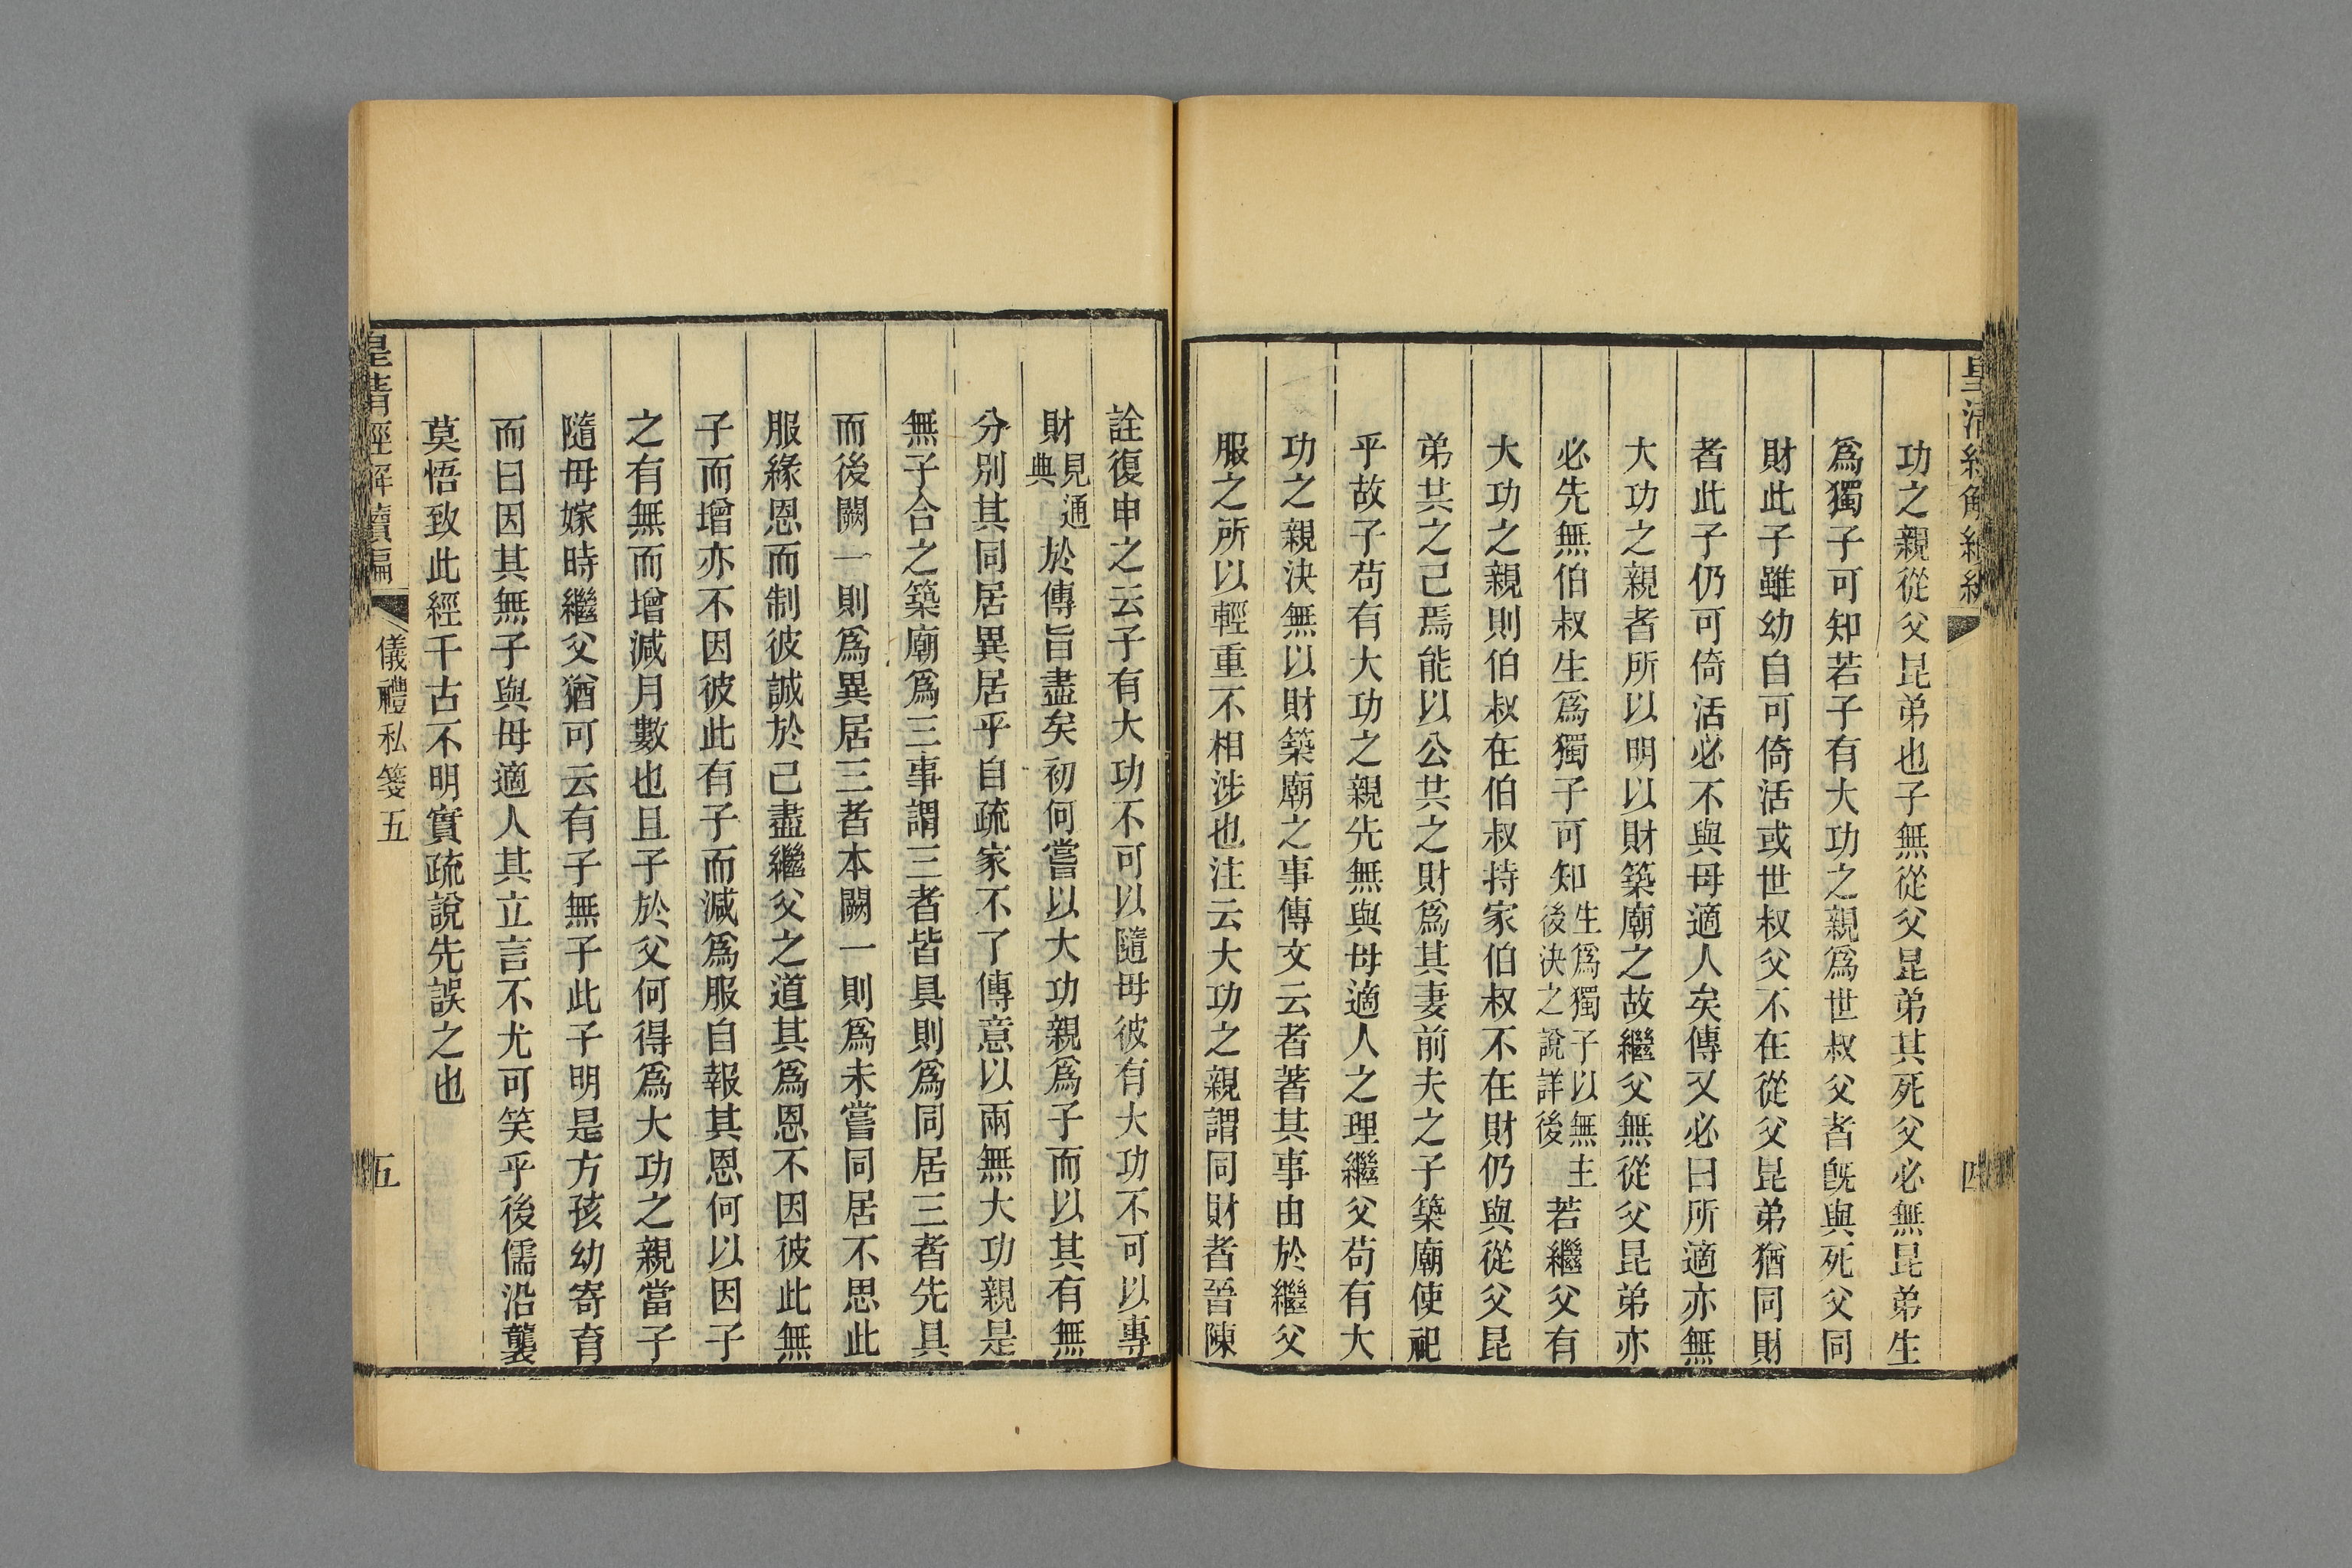 功之親從父昆弟也子無從父昆弟其死父必無昆弟生
爲獨子可知若子有大功之親爲世叔父者旣與死父同
財此子雖幼自可倚活或世叔父不在從父昆弟猶同財
者此子仍可倚活必不與母適人矣傳又必曰所適亦無
大功之親者所以明以財築廟之故繼父無從父昆弟亦
必先無伯叔生爲獨子可知生爲獨子以無主後決之說詳後若繼父有
大功之親則伯叔在伯叔持家伯叔不在財仍與從父昆
弟共之己焉能以公共之財爲其妻前夫之子築廟使祀
乎故子苟有大功之親先無與母適人之理繼父苟有大
功之親決無以財築廟之事傳文云者著其事由於繼父
服之所以輕重不相涉也注云大功之親謂同財者晉陳
詮復申之云子有大功不可以隨母彼有大功不可以專
財見通典於傳旨盡矣初何嘗以大功親爲子而以其有無
分別其同居異居乎自疏家不了傳意以兩無大功親是
無子合之築廟爲三事謂三者皆具則爲同居三者先具
而後闕一則爲異居三者本闕一則爲未嘗同居不思此
服緣恩而制彼誠於己盡繼父之道其爲恩不因彼此無
子而增亦不因彼此有子而減爲服自報其恩何以因子
之有無而增減月數也且子於父何得爲大功之親當子
隨母嫁時繼父猶可云有子無子此子明是方孩幼寄育
而曰因其無子與母適人其立言不尤可笑乎後儒沿襲
莫悟致此經千古不明實疏說先誤之也
皇清經解續編 儀禮私箋五 五